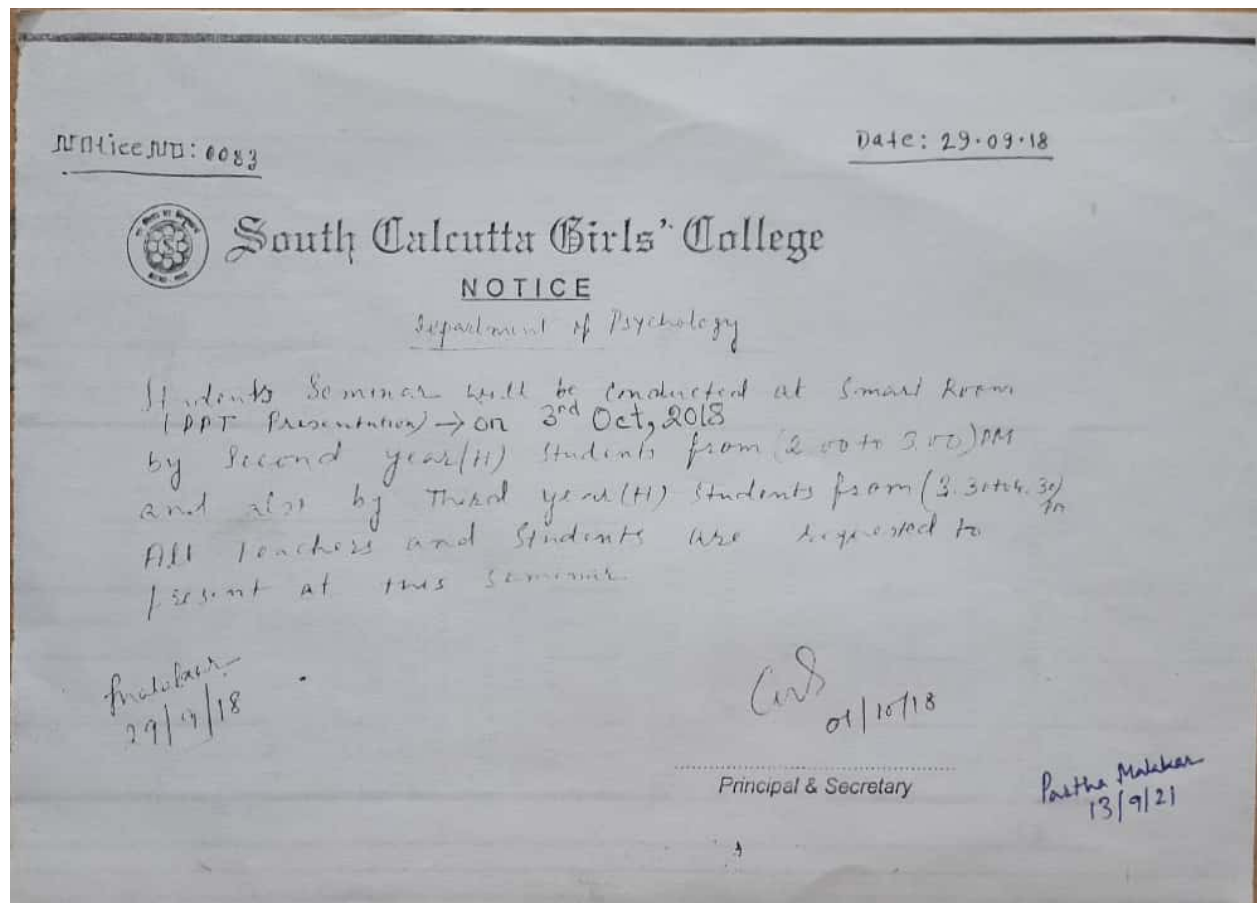 Notice No: 0083
Date: 29.09.18
South Calcutta Girls' College
NOTICE
Department of Psychology
Students Seminar will be conducted at Smart Room
(PPT Presentation) → on 3rd Oct, 2018
by Second year(H) Students from (2.00 to 3.00)PM
and also by Third year(H) Students from (3.30 to 4.30)
PM
All Teachers and Students are requested to
present at this seminar.
29/9/18
01/10/18
Principal & Secretary
Partha Malakar
13/9/21